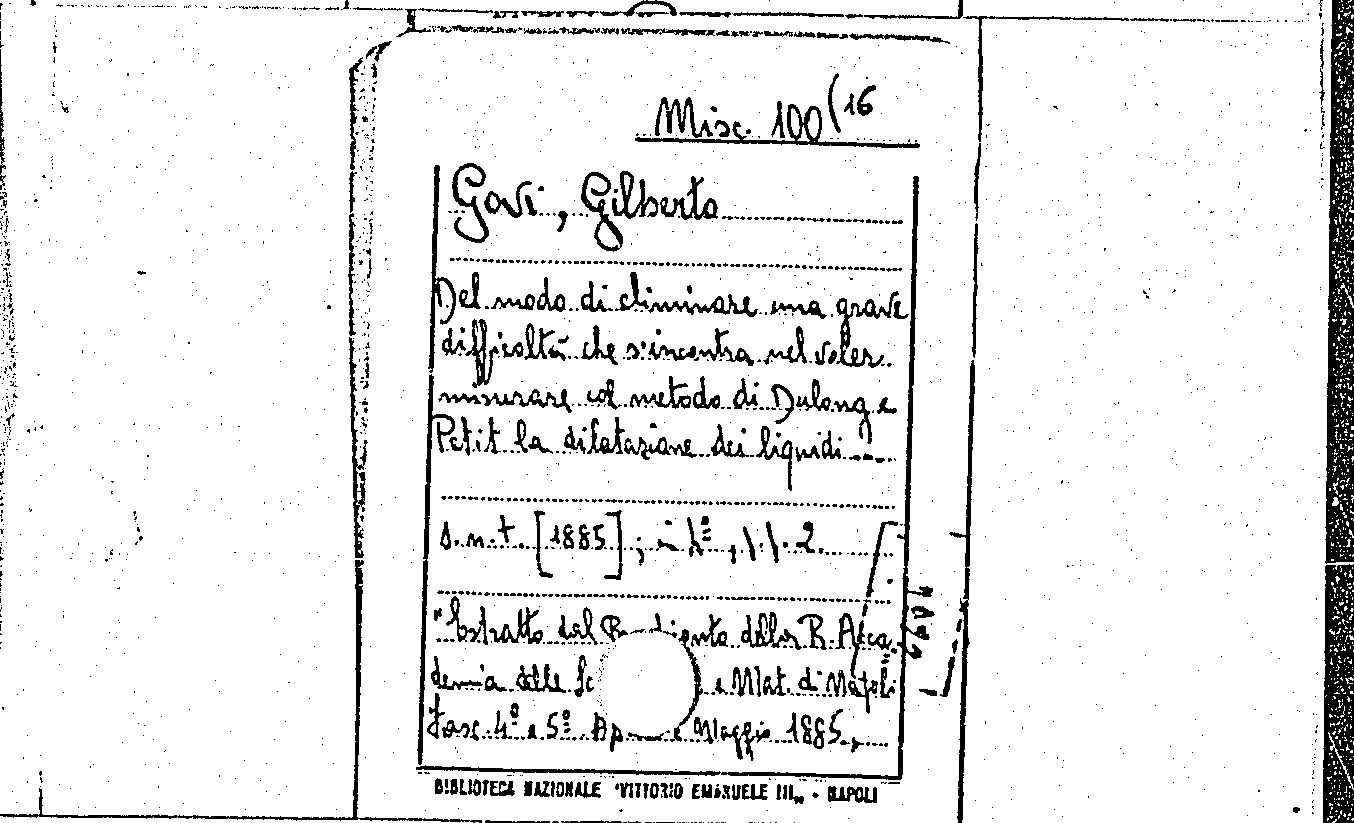 Misc. 100(16
Govi, Gilberto
Del modo di eliminare una grave
difficoltà che s'incontra nel voler
misurare col metodo di Dulong e
Petit la dilatazione dei liquidi ....
s.n.t. [1885]; in 4º, pp. 2.
"Estratto dal della R. Acca
demia delle Sc e Mat. di Napoli
Fasc. 4º e 5º Ap e Maggio 1885.,
BIBLIOTECA NAZIONALE "VITTORIO EMANUELE III„ - NAPOLI